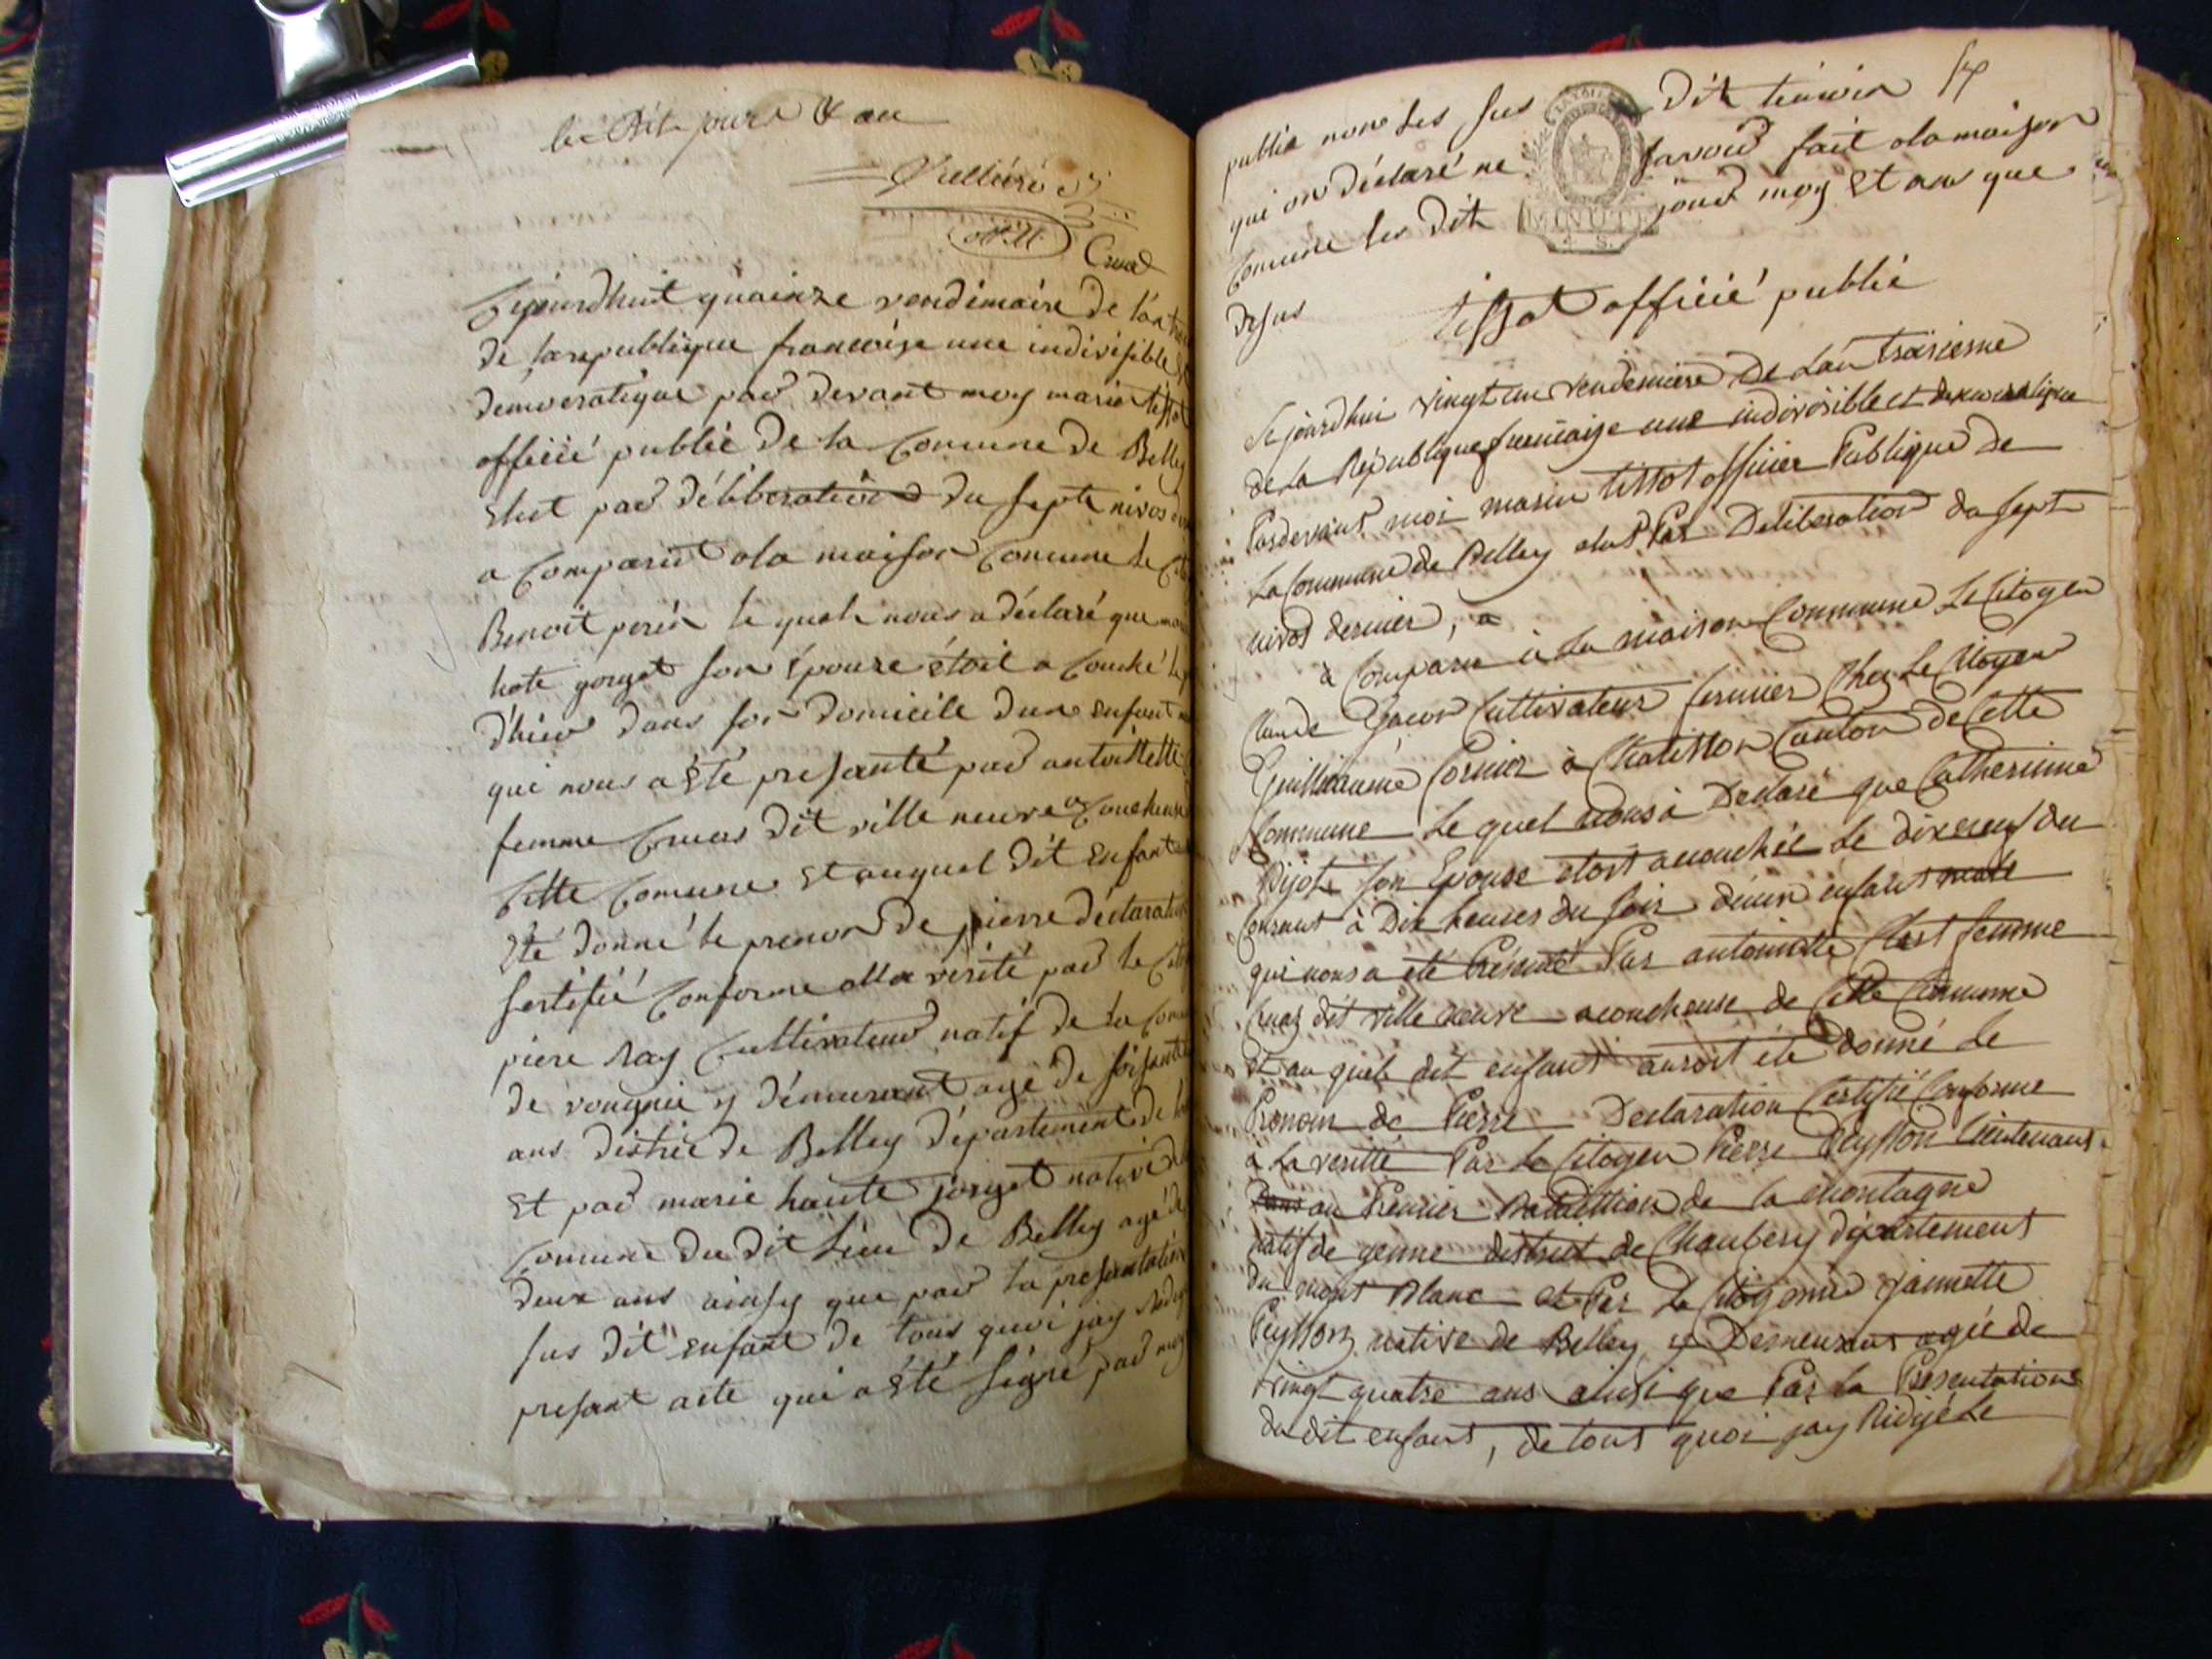 le dit jour & an
Cruat
Cejourdhuit quainze vendimaire de l'an
de la republique francoise une indivisible
democratique par devant moy marin tissot
officié publié de la Comune de Belley
Elut par déliberation du septe nivos
a Comparut ala maison Comune le
Benoit perin le queh nous a déclaré que
hote gorjet son Epouze étoit a Couché
d'hier dans son domicile dun enfant
qui nous a Eté presanté par antoinette
femme Cruas dit ville neuve acoucheuse
Cette Comune Et auquel dit Enfant
Eté donné le prenon de pierre déclaration
sertifié Conforme alla verité par le
piere Ray Cultivateur natif de la
de vongnie y démeurant agé de soisante
ans distric de Belley département de
Et par marie haute jorjet native
Comune du dit lieu de Belley agé de
deux ans ainsy que par la presantation
sus dit Enfant de tous quoi jay
presant acte qui a Eté signé par moy
publié non les sus dit timoin 57
qui on déclaré ne savoir fait ala maison
Comune les dit jour moy Et an que
desus
MINUTE
tissot officié publié
Cejourdhui vingt un vendemiere de L'an troisieme
de La République francaise une indivisible et democratique
Pardevant moi marin tissot officier Publique de
La Commune de Belley elut Par Deliberation du sept
nivos dernier, a
à Comparu à La maison Commune Le Citoyen
Claude Cultivateur fermier Chez Le Citoyen
Guilliaume Cornier à Chatillon Canton de Cette
Commune Le quel nous à Declaré que Catherinne
son Epouse etoit acouchée Le dixneuf du
Courant à Dix heures du soir d'un enfant male
qui nous a été Présenté Par antoinette Clest femme
Cruaz dit ville neuve acoucheuse de Cette Commune
Et au quel dit enfant auroit été donné Le
Prenom de Pierre Declaration Certifié Conforme
à La verité Par Le Citoyen Pierre Peysson Lieutenant
au Premier Bataillion de la montagne
natif de yenne district de Chambery département
du mont Blanc et Par La Citoyenne jannette
Peysson native de Belley y Demeurant agée de
vingt quatre ans ainsi que Par La Présentation
du dit enfant, de tout quoi jay Rédijé Le